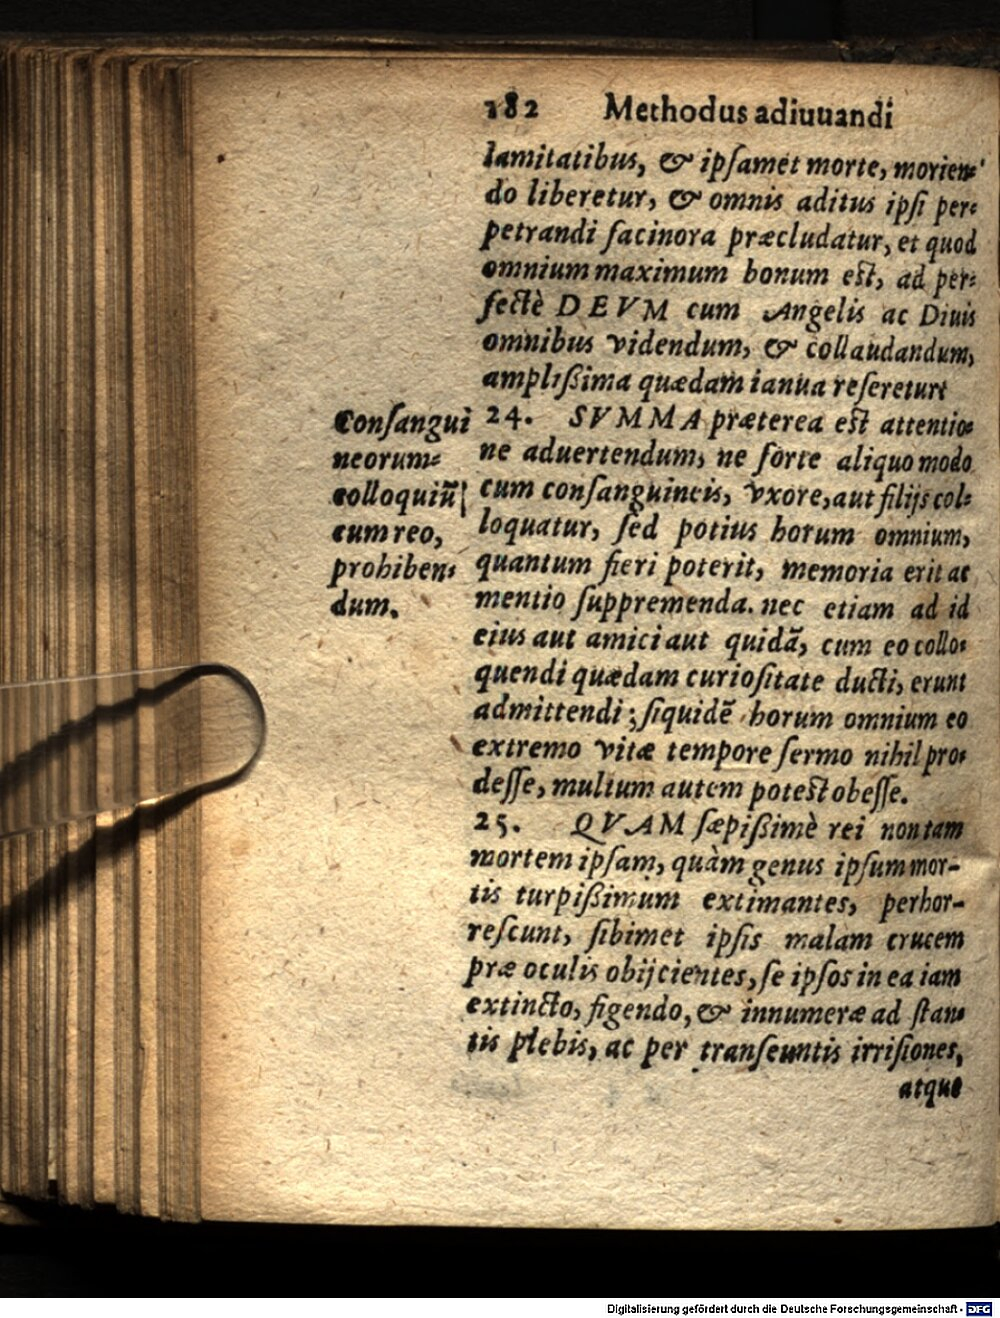 182 Methodus adiuuandi
lamitatibus, & ipsamet morte, morien-
do liberetur, & omnis aditus ipsi per-
petrandi facinora præcludatur, et quod
omnium maximum bonum est, ad per-
fectè DEVM cum Angelis ac Diuis
omnibus videndum, & collaudandum,
amplißima quædam ianua reseretur.
Consangui
neorum-
colloquiũ
cum reo,
prohiben-
dum.
24. SVMMA præterea est attentio-
ne aduertendum, ne forte aliquo modo
cum consanguineis, vxore, aut filijs col-
loquatur, sed potius horum omnium,
quantum fieri poterit, memoria erit ac
mentio suppremenda. nec etiam ad id
eius aut amici aut quidã, cum eo collo-
quendi quædam curiositate ducti, erunt
admittendi; siquidẽ horum omnium eo
extremo vitæ tempore sermo nihil pro-
desse, multum autem potest obesse.
25. QVAM sæpißimè rei non tam
mortem ipsam, quàm genus ipsum mor-
tis turpißimum extimantes, perhor-
rescunt, sibimet ipsis malam crucem
præ oculis obijcientes, se ipsos in ea iam
extincto, figendo, & innumeræ ad stan-
tis plebis, ac per transeuntis irrisiones,
atque
Digitalisierung gefördert durch die Deutsche Forschungsgemeinschaft - DFG